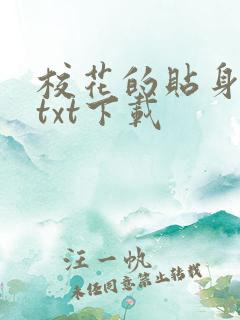 校花的贴身
txt下载
汪一帆
未经同意禁止转载